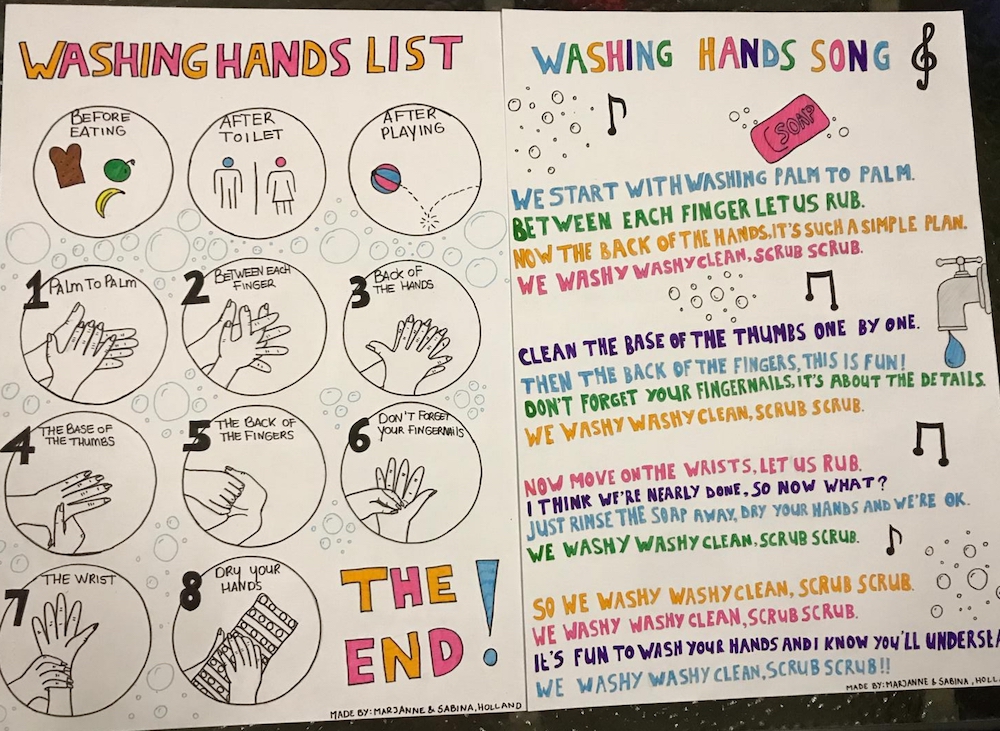 WASHING HANDS LIST
BEFORE
EATING
AFTER
TOILET
AFTER
PLAYING
1 PALM TO PALM
2 BETWEEN EACH
FINGER
3 BACK OF
THE HANDS
4 THE BASE OF
THE THUMBS
5 THE BACK OF
THE FINGERS
6 DON'T FORGET
YOUR FINGERNAILS
7 THE WRIST
8 DRY YOUR
HANDS
THE
END!
MADE BY: MARJANNE & SABINA, HOLLAND
WASHING HANDS SONG
SOAP
WE START WITH WASHING PALM TO PALM.
BETWEEN EACH FINGER LET US RUB.
NOW THE BACK OF THE HANDS, IT'S SUCH A SIMPLE PLAN.
WE WASHY WASHY CLEAN, SCRUB SCRUB.
CLEAN THE BASE OF THE THUMBS ONE BY ONE.
THEN THE BACK OF THE FINGERS, THIS IS FUN!
DON'T FORGET YOUR FINGERNAILS, IT'S ABOUT THE DETAILS.
WE WASHY WASHY CLEAN, SCRUB SCRUB.
NOW MOVE ON THE WRISTS, LET US RUB.
I THINK WE'RE NEARLY DONE, SO NOW WHAT?
JUST RINSE THE SOAP AWAY, DRY YOUR HANDS AND WE'RE OK.
WE WASHY WASHY CLEAN, SCRUB SCRUB.
SO WE WASHY WASHY CLEAN, SCRUB SCRUB.
WE WASHY WASHY CLEAN, SCRUB SCRUB.
IT'S FUN TO WASH YOUR HANDS AND I KNOW YOU'LL
WE WASHY WASHY CLEAN, SCRUB SCRUB!!
MADE BY: MARJANNE & SABINA,